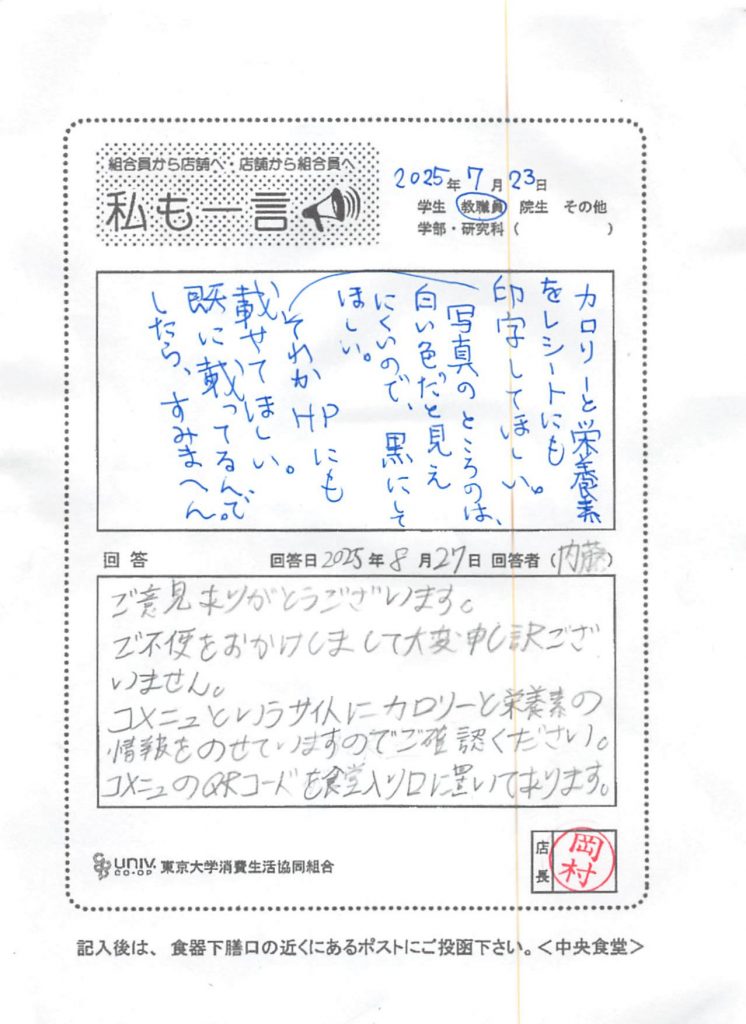 組合員から店舗へ・店舗から組合員へ
私も一言
2025年7月23日
学生 教職員 院生 その他
学部・研究科( )
カロリーと栄養素
をレシートにも
印字してほしい。
写真のところのは、
白い色だと見え
にくいので、黒にして
ほしい。
それかHPにも
載せてほしい。
既に載ってるんで
したら、すみまへん。
回答 回答日2025年8月27日 回答者(内藤)
ご意見ありがとうございます。
ご不便をおかけしまして大変申し訳ござ
いません。
コメニュというサイトにカロリーと栄養素の
情報をのせていますのでご確認ください。
コメニュのQRコードを食堂入り口に置いております。
UNIV.
CO-OP
東京大学消費生活協同組合
店長
岡村
記入後は、食器下膳口の近くにあるポストにご投函下さい。<中央食堂>